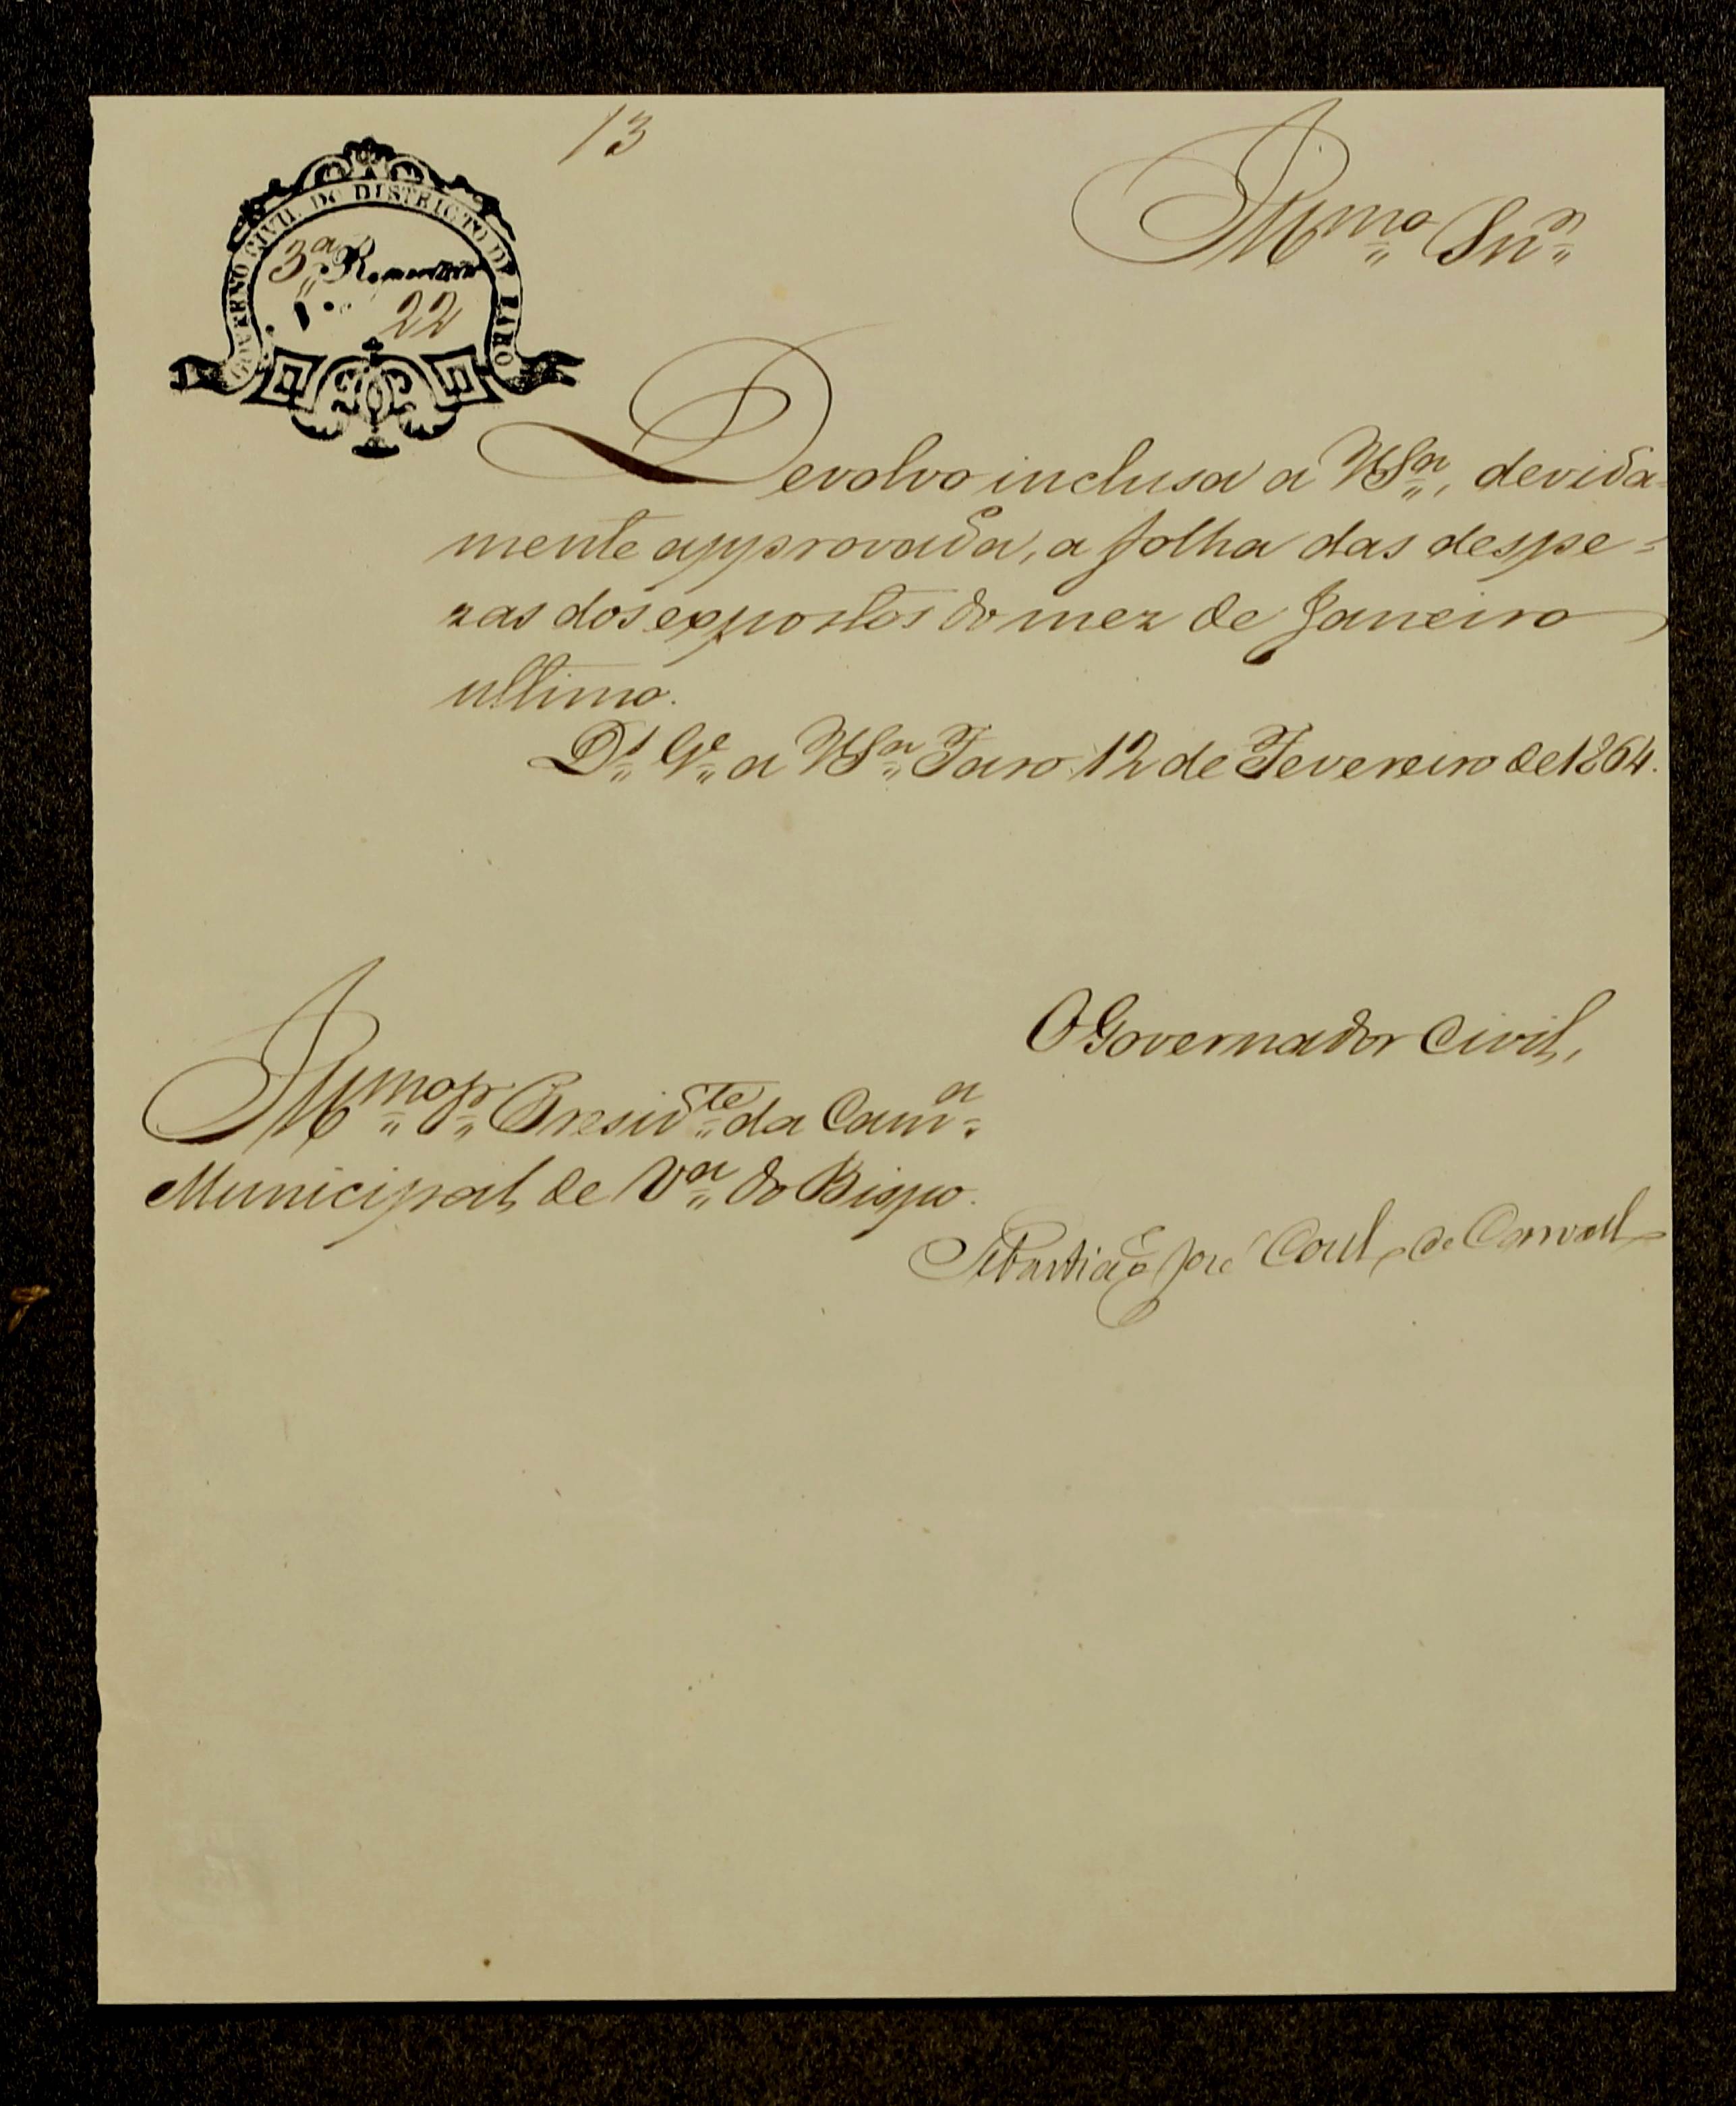 13
GOVERNO CIVIL DO DISTRICTO DE FARO
3ª Repartição
N.º 22
Illmo Snr
Devolvo inclusa a VSª, devida-
mente approvada, a folha das despe-
zas dos expostos do mez de Janeiro
ultimo.
Ds Ge a VSª Faro 12 de Fevereiro de 1864.
O Governador Civil,
Illmo Sr Presidte da Camª
Municipal de Vª do Bispo.
Sebastião José Coelho de Carvalho